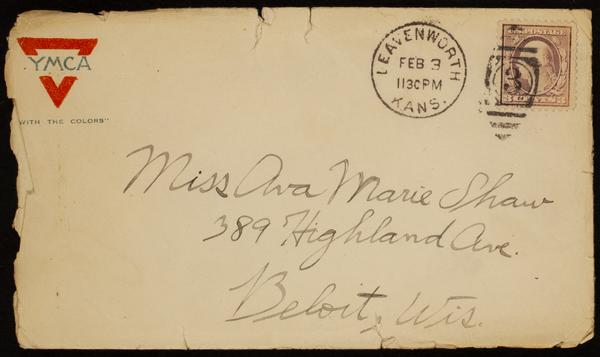 YMCA
WITH THE COLORS"
LEAVENWORTH
FEB 3
1130PM
KANS.
U.S. POSTAGE
3
Miss Ava Marie Shaw
389 Highland Ave.
Beloit, Wis.